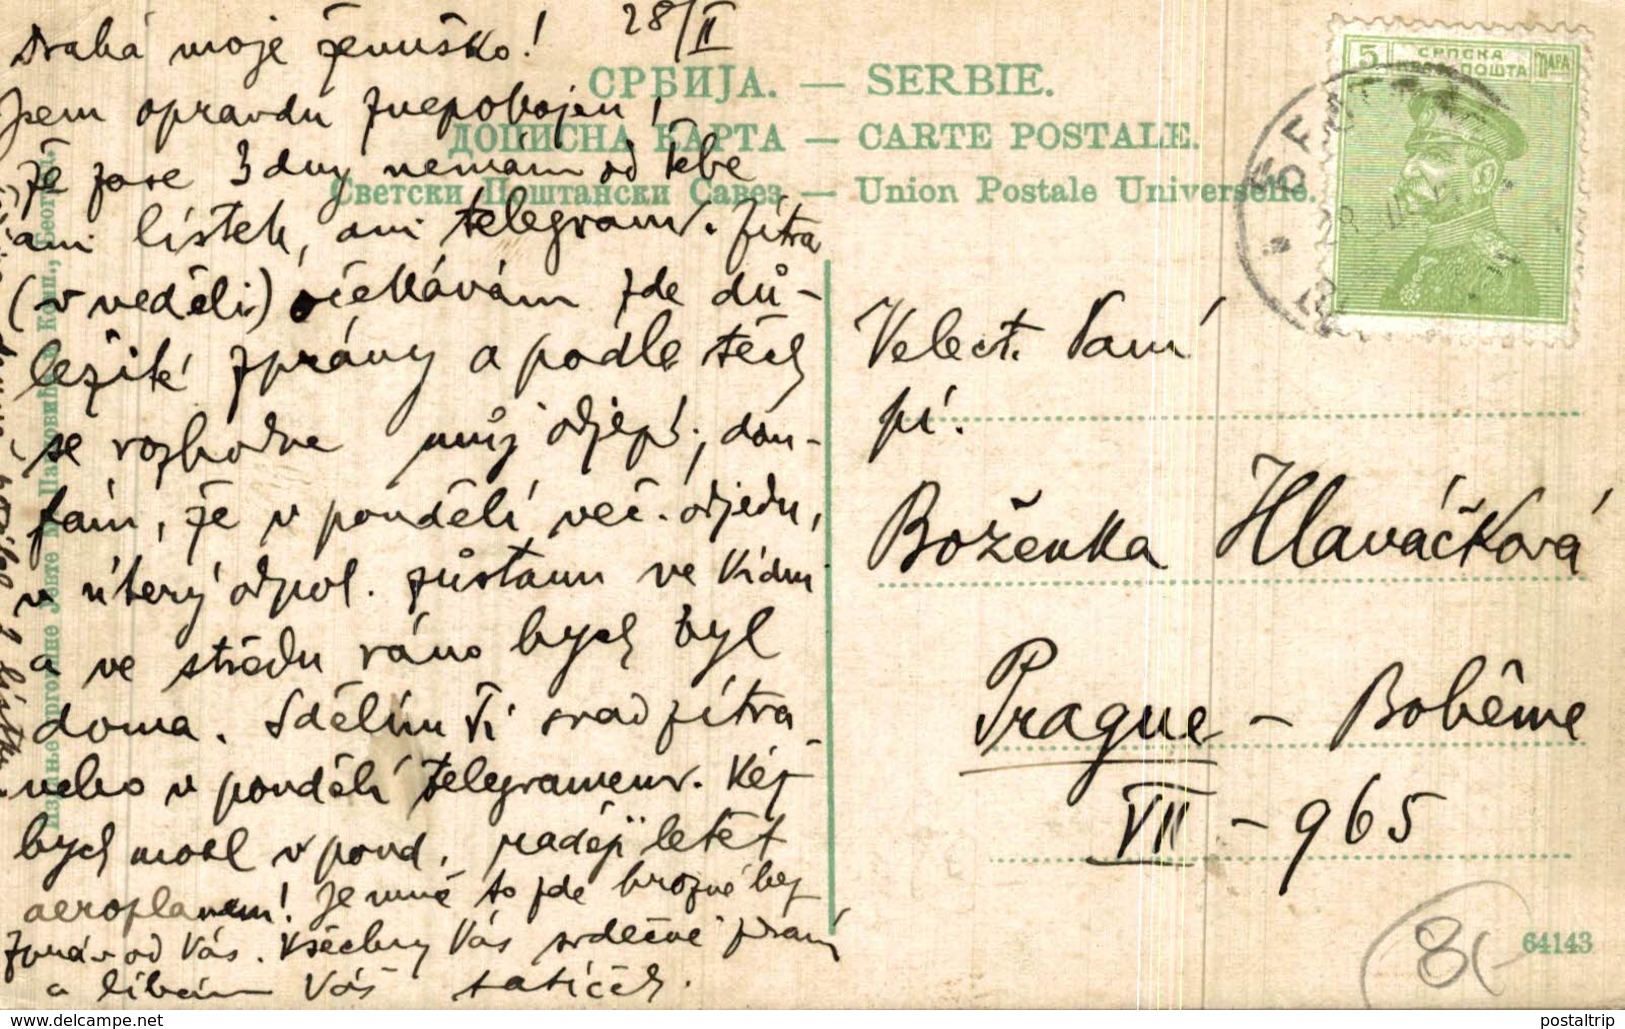 28/II
Drahá moje ženuško!
Jsem opravdu znepokojen,
že zase 3 dny nemám od tebe
ani lístek, ani telegram. Zítra
(v neděli) očekávám zde dů-
ležité zprávy a podle těch
se rozhodne můj odjezd, dou-
fám, že v pondělí več. odjedu,
v úterý odpol. zůstanu ve Vídni
a ve středu ráno bych byl
doma. Sdělím Ti snad zítra
nebo v pondělí telegramem. Kéž
bych mohl v pond. raději letět
aeroplanem! Je mně to zde hrozné bez
zpráv od Vás. Všechny Vás srdečně zdraví
a líbám Váš tatíček.
СРБИЈА. — SERBIE.
ДОПИСНА КАРТА — CARTE POSTALE.
Светски Поштански Савез — Union Postale Universelle.
5 СРПСКА ПОШТА ПАРА
Velect. Paní
pí.
Boženka Hlaváčková
Prague - Bohême
VII - 965
64143
mcrnkovic.delcampe.net
postaltrip